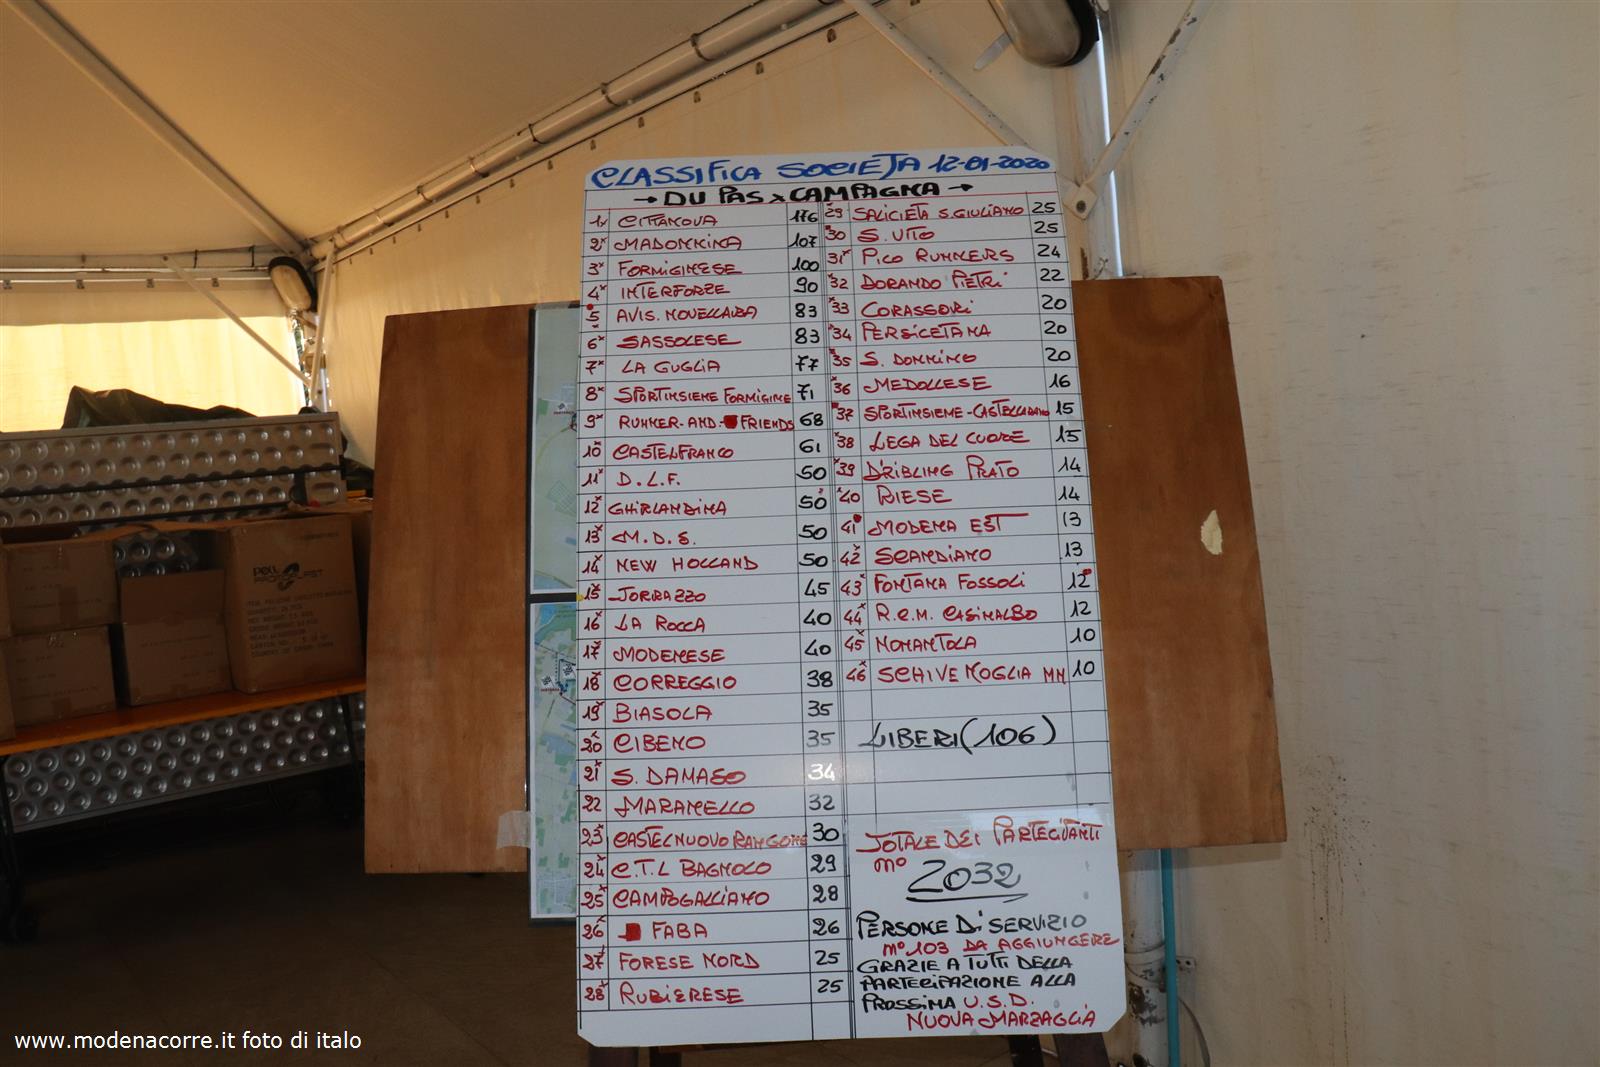 CLASSIFICA SOCIETA 12-01-2020
→ DU PAS X CAMPAGNA →
1x CITTANOVA 176
2x MADONNINA 107
3x FORMIGINESE 100
4x INTERFORZE 90
5 AVIS. NOVELLARA 83
6x SASSOLESE 83
7x LA GUGLIA 77
8x SPORTINSIEME FORMIGINE 71
9x RUNNER-AND-FRIENDS 68
10x CASTELFRANCO 61
11x D.L.F. 50
12x GHIRLANDINA 50
13x M.D.S. 50
14x NEW HOLLAND 50
15x TORRAZZO 45
16x LA ROCCA 40
17x MODENESE 40
18x CORREGGIO 38
19x BIASOLA 35
20x CIBENO 35
21x S. DAMASO 34
22 MARANELLO 32
23x CASTELNUOVO RANGONE 30
24x C.T.L BAGNOLO 29
25x CAMPOGALLIANO 28
26x FABA 26
27x FORESE NORD 25
28x RUBIERESE 25
29 SALICIETA S. GIULIANO 25
30 S. VITO 25
31x PICO RUNNERS 24
32 DORANDO PIETRI 22
33 CORASSORI 20
34 PERSICETANA 20
35 S. DONNINO 20
36 MEDOLLESE 16
37 SPORTINSIEME-CASTELLARANO 15
38 LEGA DEL CUORE 15
39 DRIBLING PRATO 14
40 RIESE 14
41 MODENA EST 13
42x SCANDIANO 13
43x FONTANA FOSSOLI 12
44x R.C.M. CASINALBO 12
45x NONANTOLA 10
46x SCHIVENOGLIA MN 10
LIBERI (106)
TOTALE DEI PARTECIPANTI
N° 2032
PERSONE DI SERVIZIO
N° 103 DA AGGIUNGERE
GRAZIE A TUTTI DELLA
PARTECIPAZIONE ALLA
PROSSIMA U.S.D.
NUOVA MARZAGLIA
www.modenacorre.it foto di italo